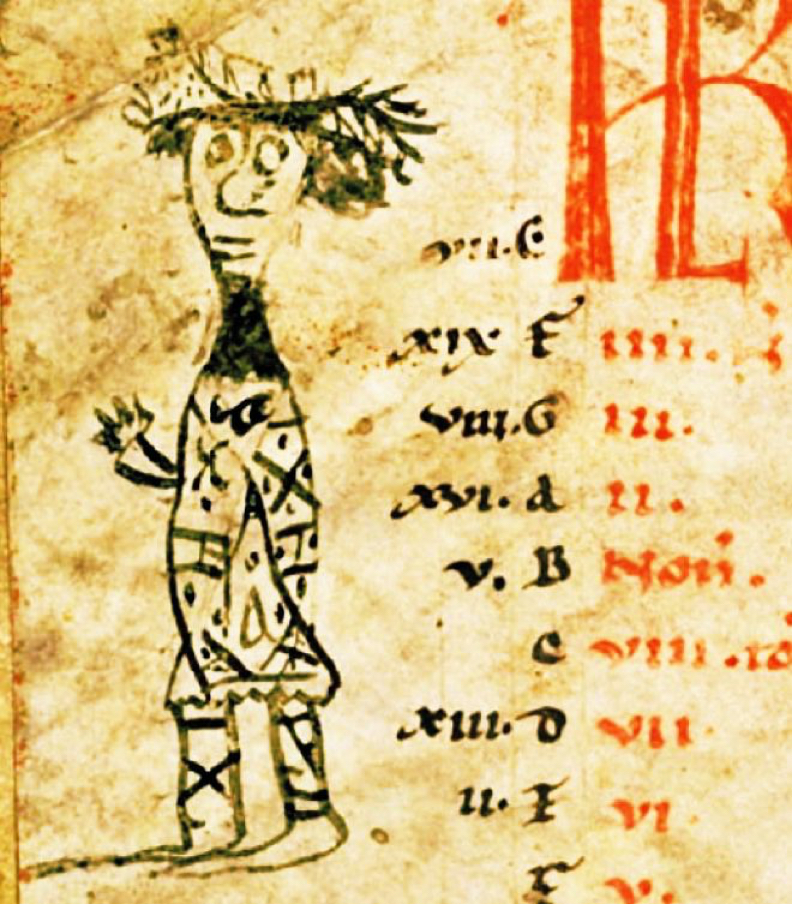 E
xix F iiii.
viii. G iii.
xvi. A ii.
v. B Non.
C viii. id
xiii. D vii
ii. E vi
F v.